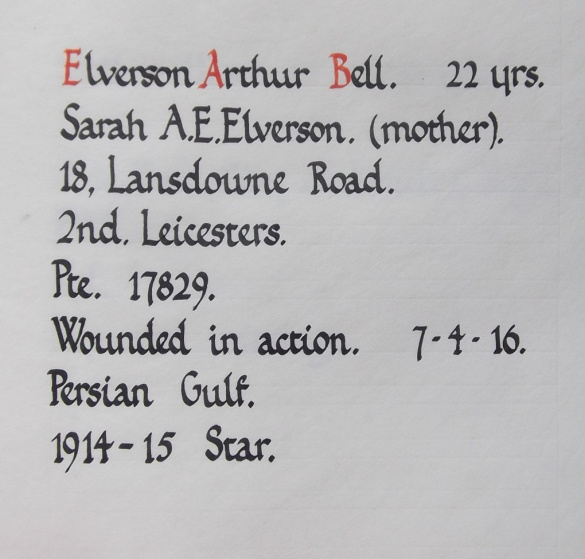 Elverson Arthur Bell. 22 yrs.
Sarah A.E.Elverson. (mother).
18, Lansdowne Road.
2nd. Leicesters.
Pte. 17829.
Wounded in action. 7-4-16.
Persian Gulf.
1914-15 Star.